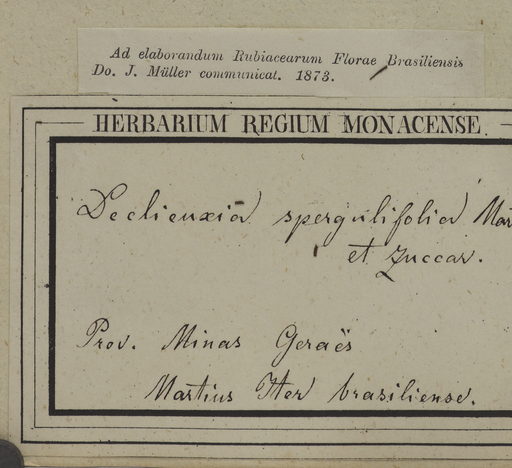 Ad elaborandum Rubiacearum Florae Brasiliensis
Do. J. Müller communicat. 1873.
HERBARIUM REGIUM MONACENSE.
Declieuxia spergulifolia Mar
et Zuccar.
Prov. Minas Geraës
Martius Iter brasiliense.